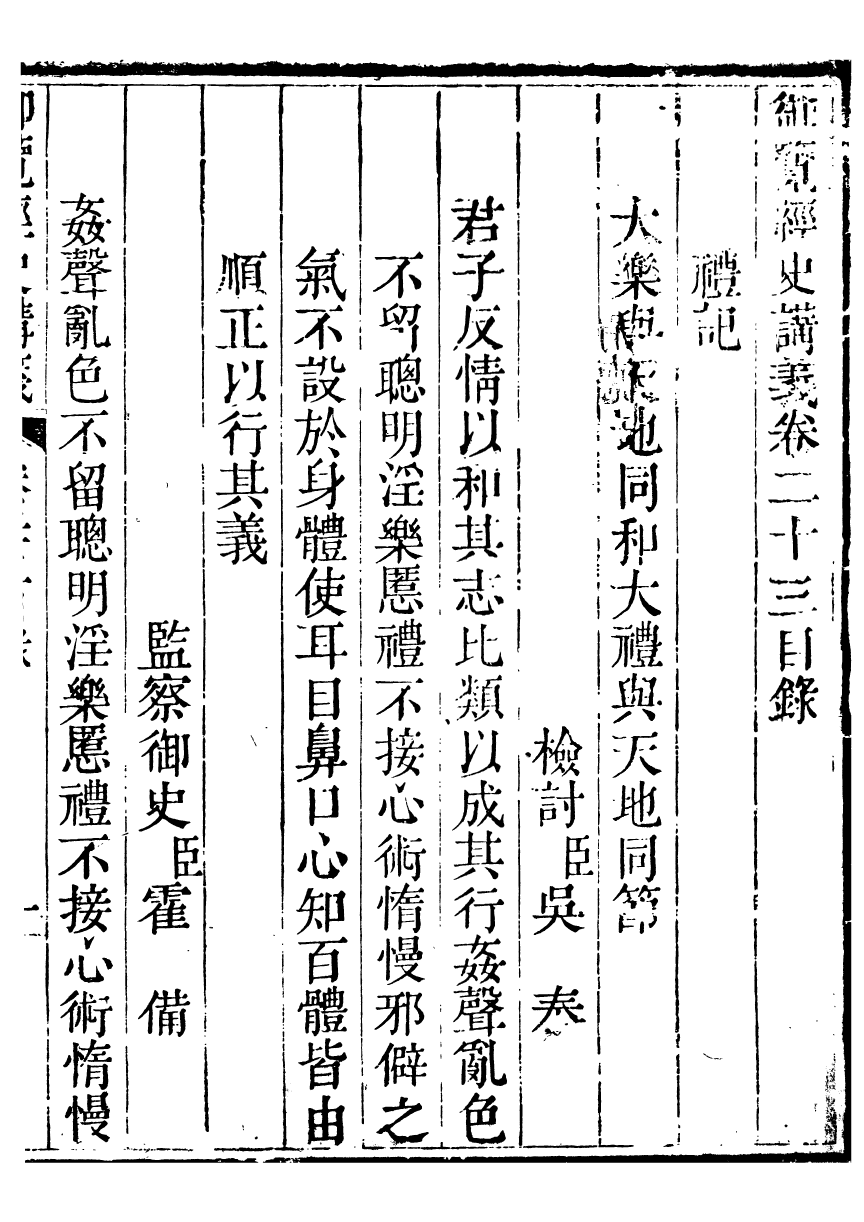 御覽經史講義卷二十三目錄
禮記
大樂與天地同和大禮與天地同節
檢討臣吳泰
君子反情以和其志比類以成其行姦聲亂色
不留聰明淫樂慝禮不接心術惰慢邪僻之
氣不設於身體使耳目鼻口心知百體皆由
順正以行其義
監察御史臣霍備
姦聲亂色不留聰明淫樂慝禮不接心術惰慢